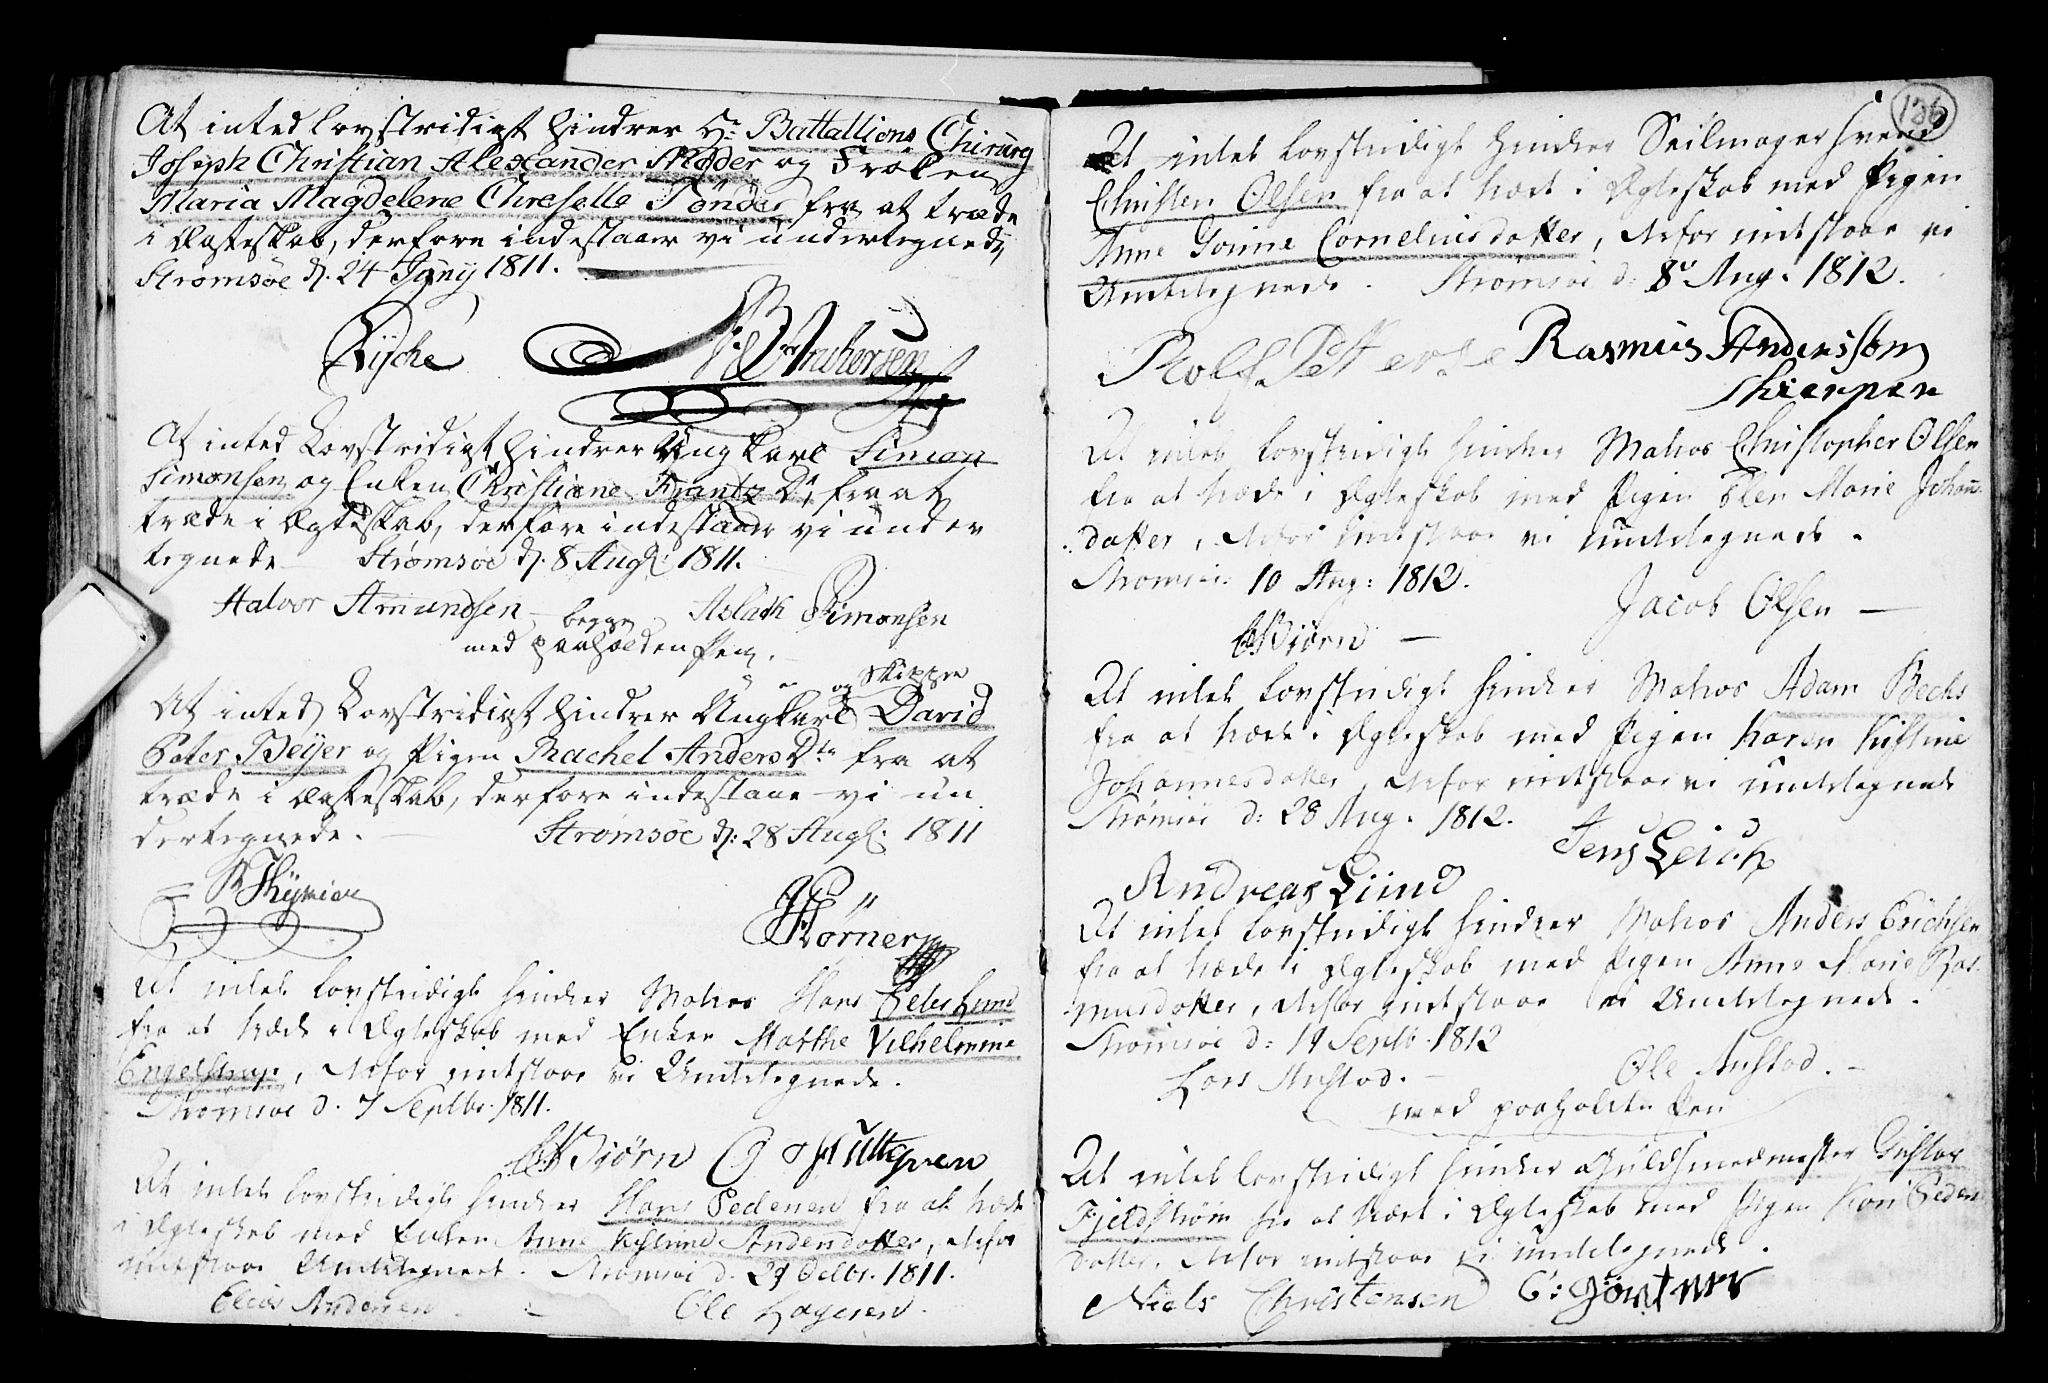 At inted Lovstridigt hindrer Hr. Battallions Chirurg
Joseph Christian Alexander Møder og Frøken
Maria Magdelene Chreselle Tønder, fra at træde
i Ægteskab, derfore indestaaer vi undertegnede,
Strømsøe d. 24 Junij 1811.
At inted Lovstridigt hindrer Ung Karl Simon
Simonsen og Enken Christiane Frantz Dr. fra at
træde i Ægteskab, derfore indestaaer vi under
tegnede Strømsøe d. 8 Augs: 1811.
Halvor Amundsen Aslack Simonsen
begge
med paaholden Pen.
og Skipper
At inted Lovstridigt hindrer Ungkarl David
Peter Beyer og Pigen Rachel Anders Dtr fra at
træde i Ægteskab, derfore indestaae vi un
dertegnede. Strømsøe d: 28 Augs: 1811
Hørner
At intet lovstridigt hindrer Matros Hans Peter Lund
fra at træde i Ægteskab med Enken Marthe Vilhelmine
Engelstrup, derfor indstaae vi Undertegnede.
Strømsøe d. 7 Septbr. 1811.
Bjørn
At intet lovstridigt hindrer Hans Pedersen fra at træde
i Ægteskab med Enken Anne Kistine Andersdatter, derfor
indstaae Undertegnede. Strømsøe d. 29 Octbr. 1811.
Elias Andersen Ole Hagesen
136
At intet lovstridigt hindrer Seilmager Svend
Christen Olsen fra at træde i Ægteskab med Pigen
Anne Gonine Corneliusdatter, derfor indstaae vi
Undertegnede. Strømsøe d: 8de Aug. 1812.
Rolf Petterse Rasmus Anderssøn
Skierpen
At intet lovstridigt hindrer Matros Christopher Olsen
fra at træde i Ægteskab med Pigen Ellen Marie Johan
datter, derfor indstaae vi undertegnede.
Strømsøe 10 Aug: 1812.
Jacob Olsen
Bjørn
At intet lovstridigt hindrer Matros Adam Bechs
fra at træde i Ægteskab med Pigen Karen Kistine
Johannesdatter, derfor indstaae vi undertegnede
Strømsøe d: 28 Aug. 1812.
Jens Leich
Andreas Lund
At intet lovstridigt hindrer Matros Anders Erichsen
fra at træde i Ægteskab med Pigen Anne Marie Ras
musdatter, derfor indstaae vi Undertegnede.
Strømsøe d: 14 Septb. 1812
Lars Anstad. Ole Anstad.
med paaholdte Pen
At intet lovstridigt hindrer Guldsmedmester Gustav
Fjeldstrøm fra at træde i Ægteskab med Pigen Kari Peders
datter, derfor indstaae vi undertegnede.
Niels Christensen C: Görtner